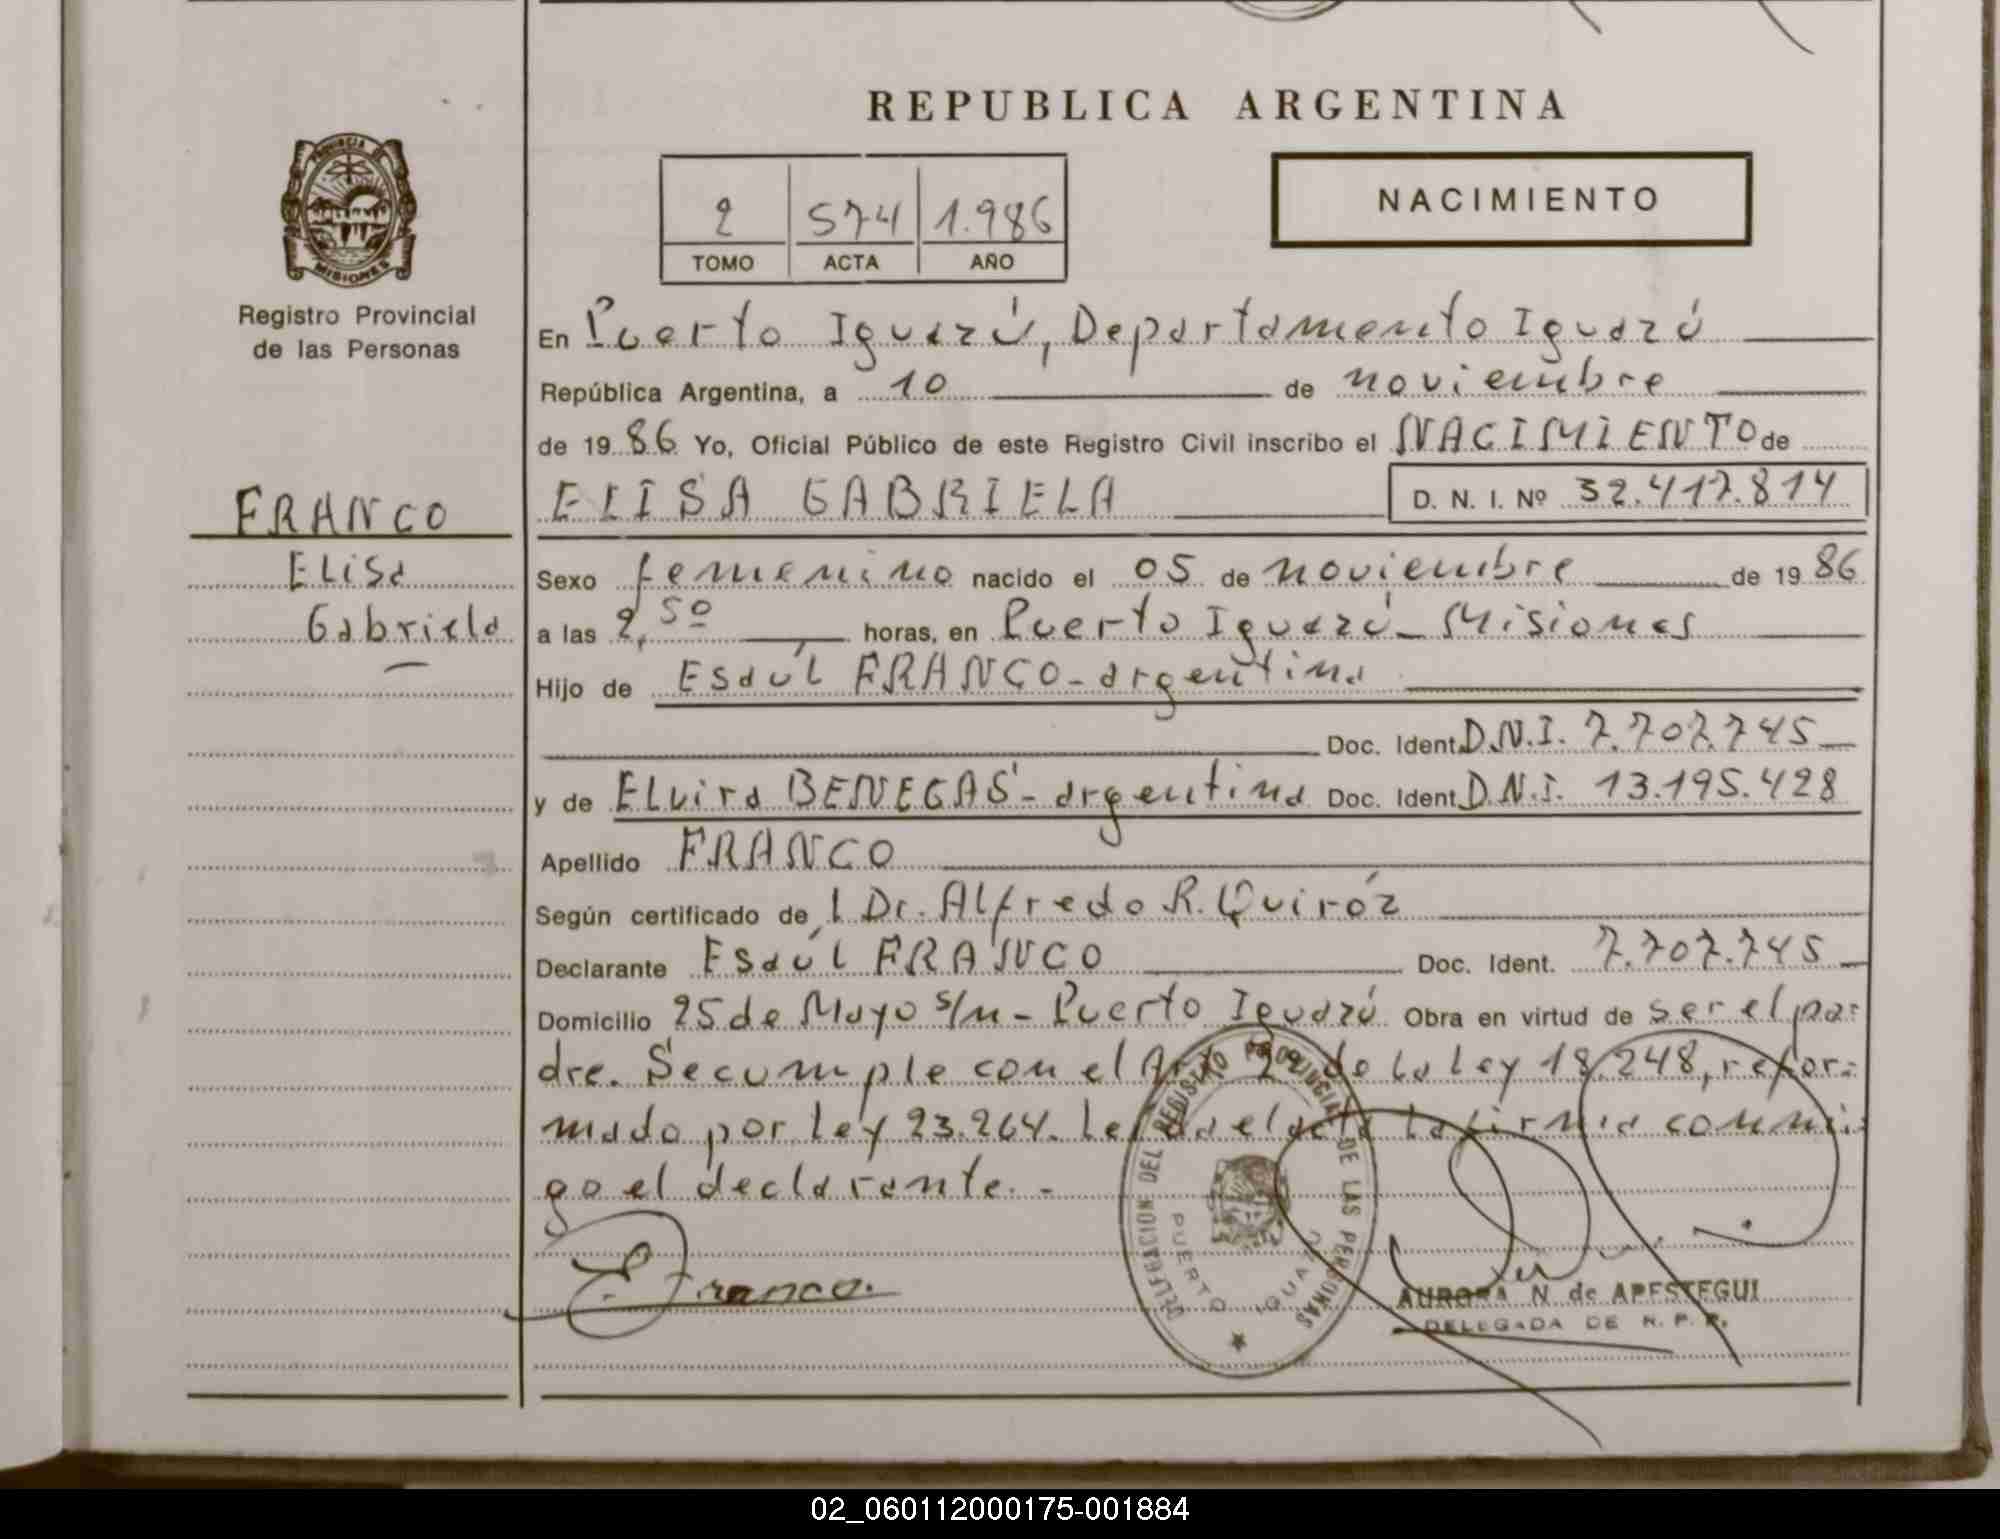 REPUBLICA ARGENTINA
PROVINCIA DE
MISIONES
Registro Provincial
de las Personas
NACIMIENTO
2 574 1.986
TOMO ACTA AÑO
En Puerto Iguazú, Departamento Iguazú
República Argentina, a 10 de noviembre
de 1986 Yo, Oficial Público de este Registro Civil inscribo el NACIMIENTO de
FRANCO
Elisa
Gabriela
ELISA GABRIELA D. N. I. Nº 32.417.814
Sexo femenino nacido el 05 de noviembre de 1986
a las 2,50 horas, en Puerto Iguazú - Misiones
Hijo de Esaúl FRANCO - argentina
Doc. Ident. D.N.I. 7.707.745
y de Elvira BENEGAS - argentina Doc. Ident. D.N.I. 13.195.428
Apellido FRANCO
Según certificado de l Dr. Alfredo R. Quiróz
Declarante Esaúl FRANCO Doc. Ident. 7.707.745
Domicilio 25 de Mayo s/n - Puerto Iguazú Obra en virtud de ser el pa-
dre. Se cumple con el Art. 2 de la Ley 18.248, refor-
mado por Ley 23.264. Leída el acta la firma conmi-
go el declarante. -
E Franco.
DELEGACION DEL REGISTRO PROVINCIAL DE LAS PERSONAS
PUERTO IGUAZU
AURORA N de APESTEGUI
DELEGADA DE R. P. P.
02_060112000175-001884